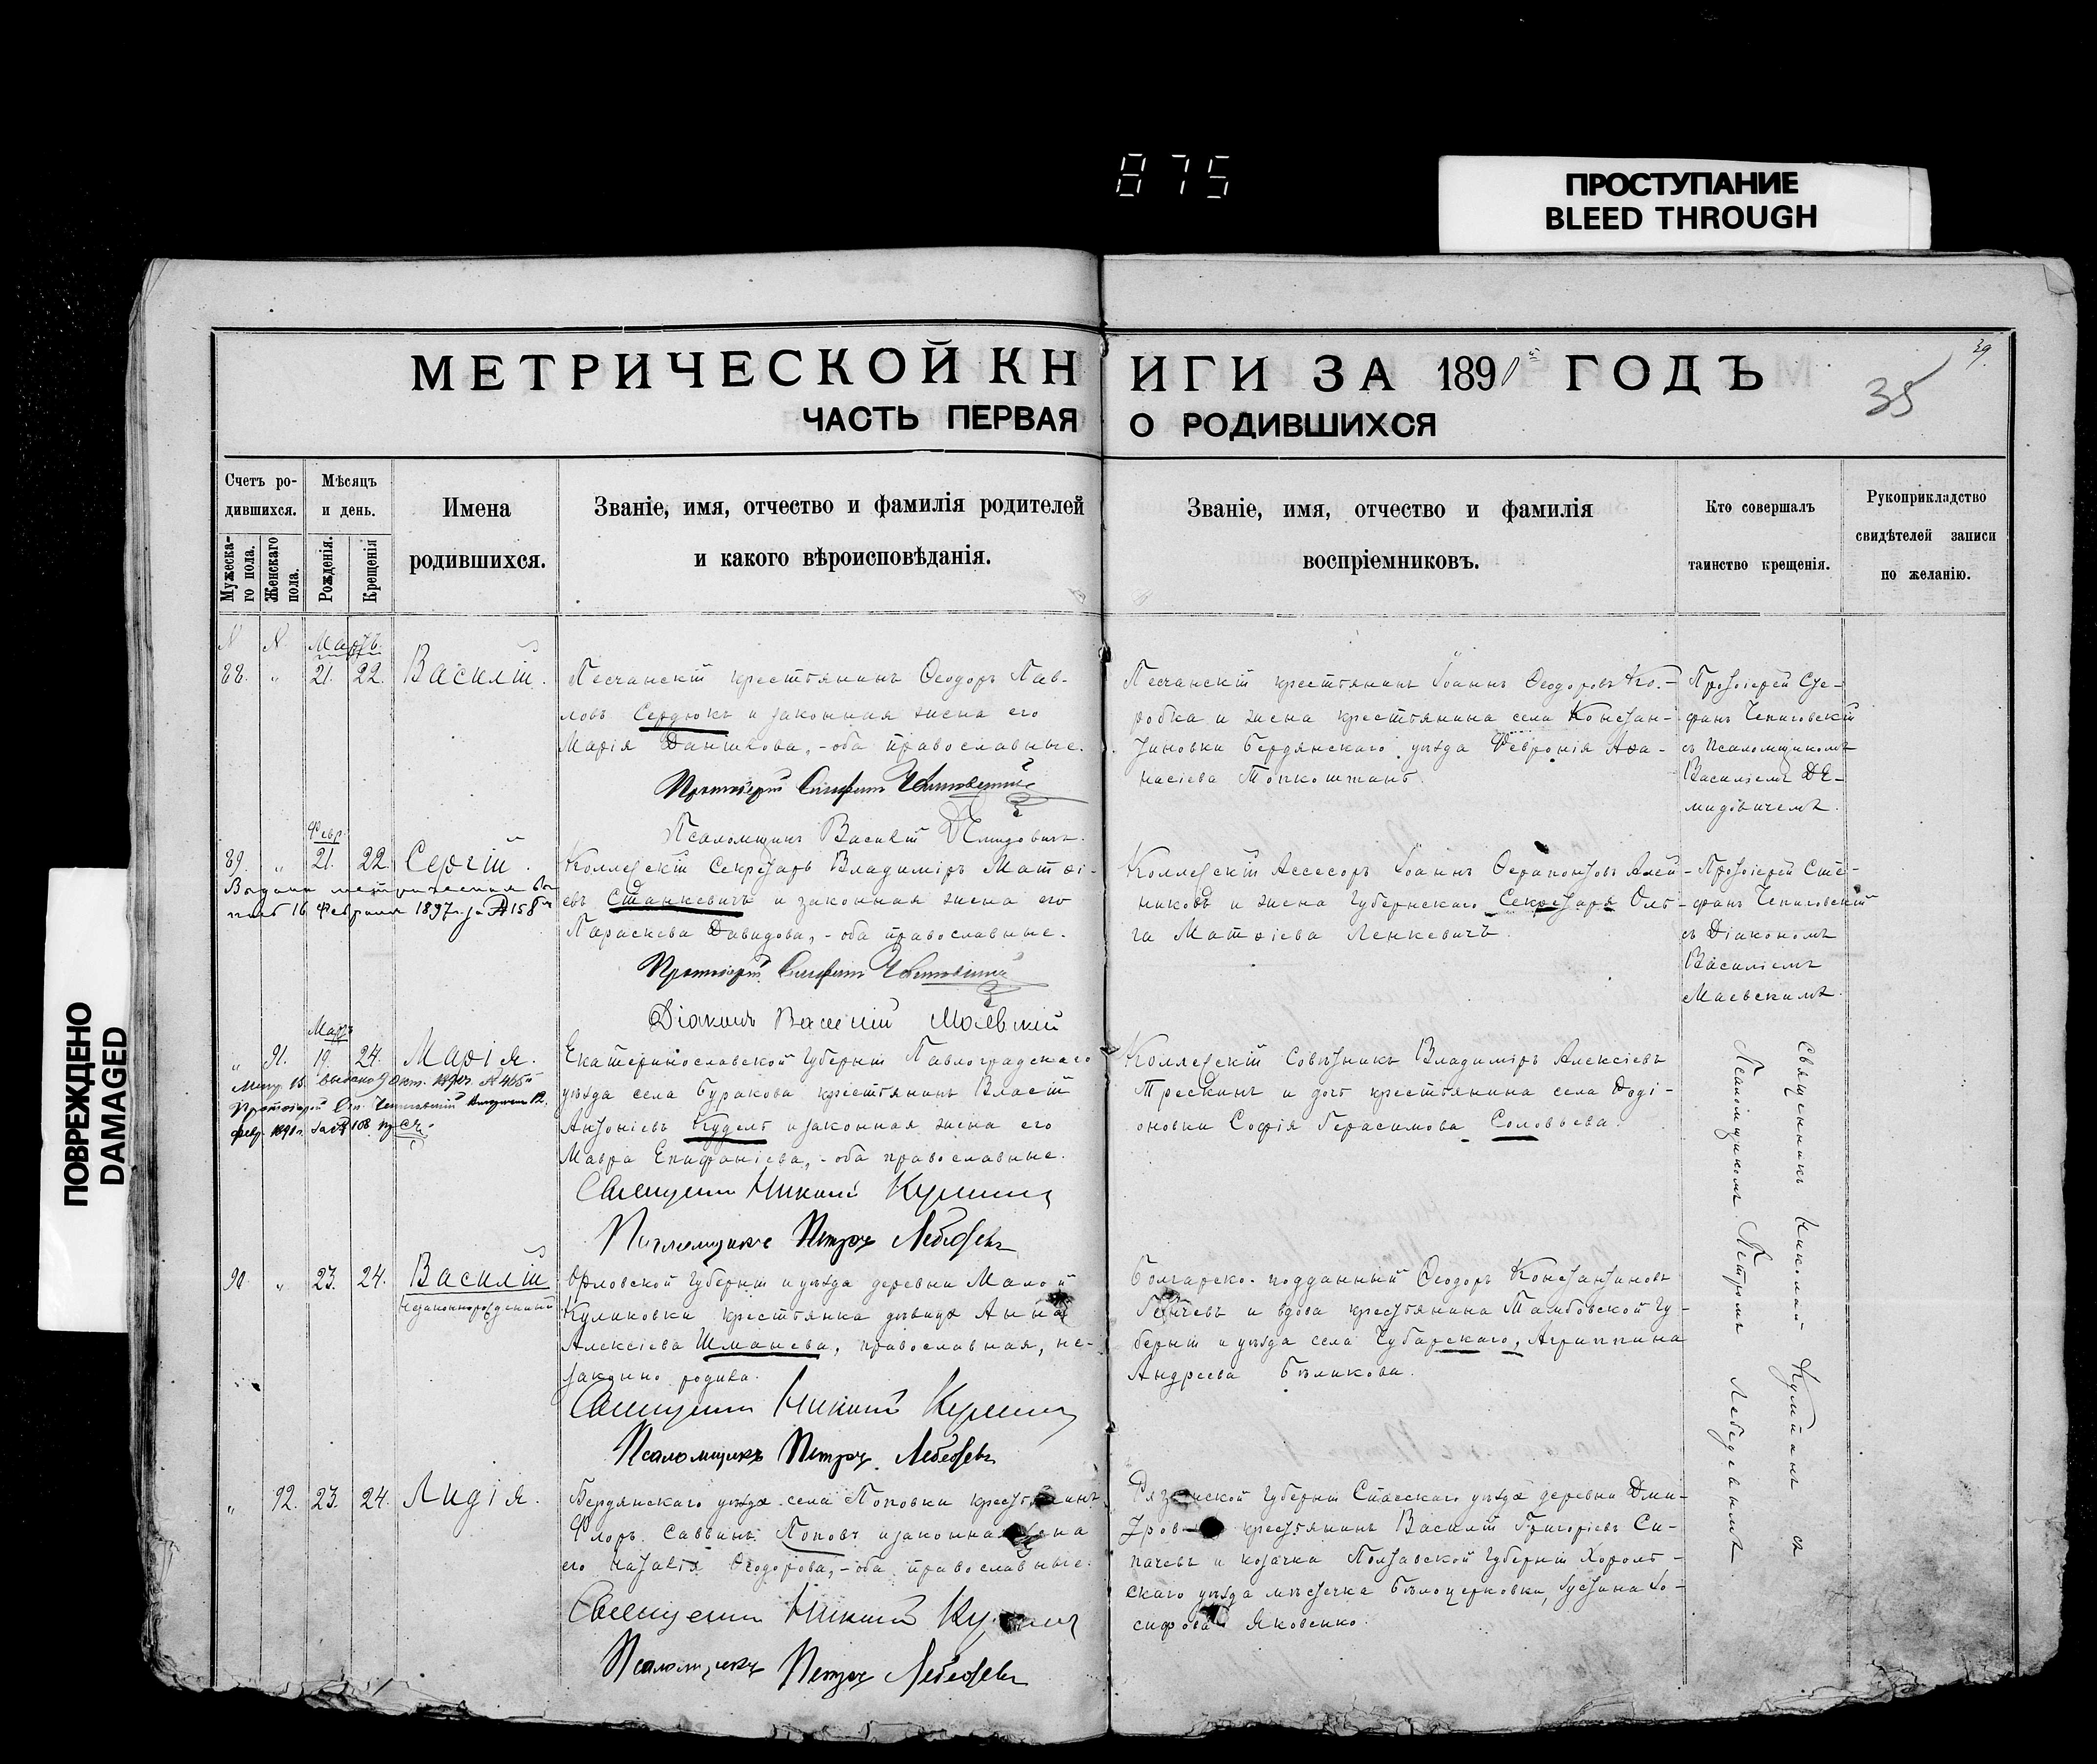 875
ПРОСТУПАНИЕ
BLEED THROUGH
ПОВРЕЖДЕНО
DAMAGED
39.
35
МЕТРИЧЕСКОЙ КНИГИ ЗА 1891й ГОДЪ
ЧАСТЬ ПЕРВАЯ О РОДИВШИХСЯ
Счетъ ро-
дившихся.
Мужеска-
го пола.
Женскаго
пола.
Мѣсяцъ
и день.
Рожденія.
Крещенія
Имена
родившихся.
Званіе, имя, отчество и фамилія родителей
и какого вѣроисповѣданія.
Званіе, имя, отчество и фамилія
воспріемниковъ.
Кто совершалъ
таинство крещенія.
Рукоприкладство
свидѣтелей записи
по желанію.
N N Мартъ.
88. „ 21. 22. Василій.
Песчанскій крестьянинъ Ѳеодоръ Пав-
ловъ Сердюкъ и законная жена его
Марія Данилова, - оба православные.
Протоіерей Стефанъ Чепиговскій
Псаломщикъ Василій Демидовичъ.
Песчанскій крестьянинъ Іоаннъ Ѳеодоровъ Ко-
робка и жена крестьянина села Констан-
тиновки Бердянскаго уѣзда Февронія Аѳа-
насіева
Протоіерей Сте-
фанъ Чепиговскій
съ Псаломщикомъ
Василіемъ Де-
мидовичемъ.
Февр.
89. „ 21. 22. Сергій.
16 Февраля 1897 г. за № 158
Коллежскій Секретарь Владиміръ Матѳі-
евъ Станкевичъ и законная жена его
Параскева Давидова, - оба православные.
Протоіерей Стефанъ Чепиговскій
Діаконъ Василій Маевскій
Коллежскій Ассесоръ Іоаннъ Ѳерапонтовъ Алей-
никовъ и жена Губернскаго Секретаря Оль-
га Матѳіева Ленкевичъ.
Протоіерей Сте-
фанъ Чепиговскій
съ Діакономъ
Василіемъ
Маевскимъ.
Мартъ
„ 91. 19. 24. Марія.
Екатеринославской Губерніи Павлоградскаго
уѣзда села Буракова крестьянинъ Власій
Антоніевъ Кудель и законная жена его
Мавра Епифаніева, - оба православные.
Священникъ Николай Кулманъ
Псаломщикъ Петръ Лебедевъ
Коллежскій Совѣтникъ Владиміръ Алексіевъ
Трескинъ и дочь крестьянина села Доді-
оновки Софія Герасимова Соловьева.
Священникъ Николай Кулманъ съ
Псаломщикомъ Петромъ Лебедевымъ
90. „ 23. 24. Василій
незаконнорожденный
Орловской Губерніи и уѣзда деревни Малой
Куликовки крестьянка дѣвица Анна
Алексіева Шманева, православная, не-
законно родила.
Священникъ Николай Кулманъ
Псаломщикъ Петръ Лебедевъ
Болгарско-подданный Ѳеодоръ Константиновъ
Генчевъ и вдова крестьянина Тамбовской Гу-
берніи и уѣзда села Чубарскаго, Агриппина
Андреева Бѣликова.
„ 92. 23. 24. Лидія.
Бердянскаго уѣзда села Поповки крестьянинъ
Флоръ Саввинъ Поповъ и законная жена
его Наталія Ѳеодорова, - оба православные.
Священникъ Николай Кулманъ
Псаломщикъ Петръ Лебедевъ
Рязанской Губерніи Спасскаго уѣзда деревни Дми-
тров крестьянинъ Василій Григоріевъ Си-
пачевъ и козачка Полтавской Губерніи Хороль-
скаго уѣзда мѣстечка Бѣлоцерковки, Іустина Іо-
сифова Яковенко.